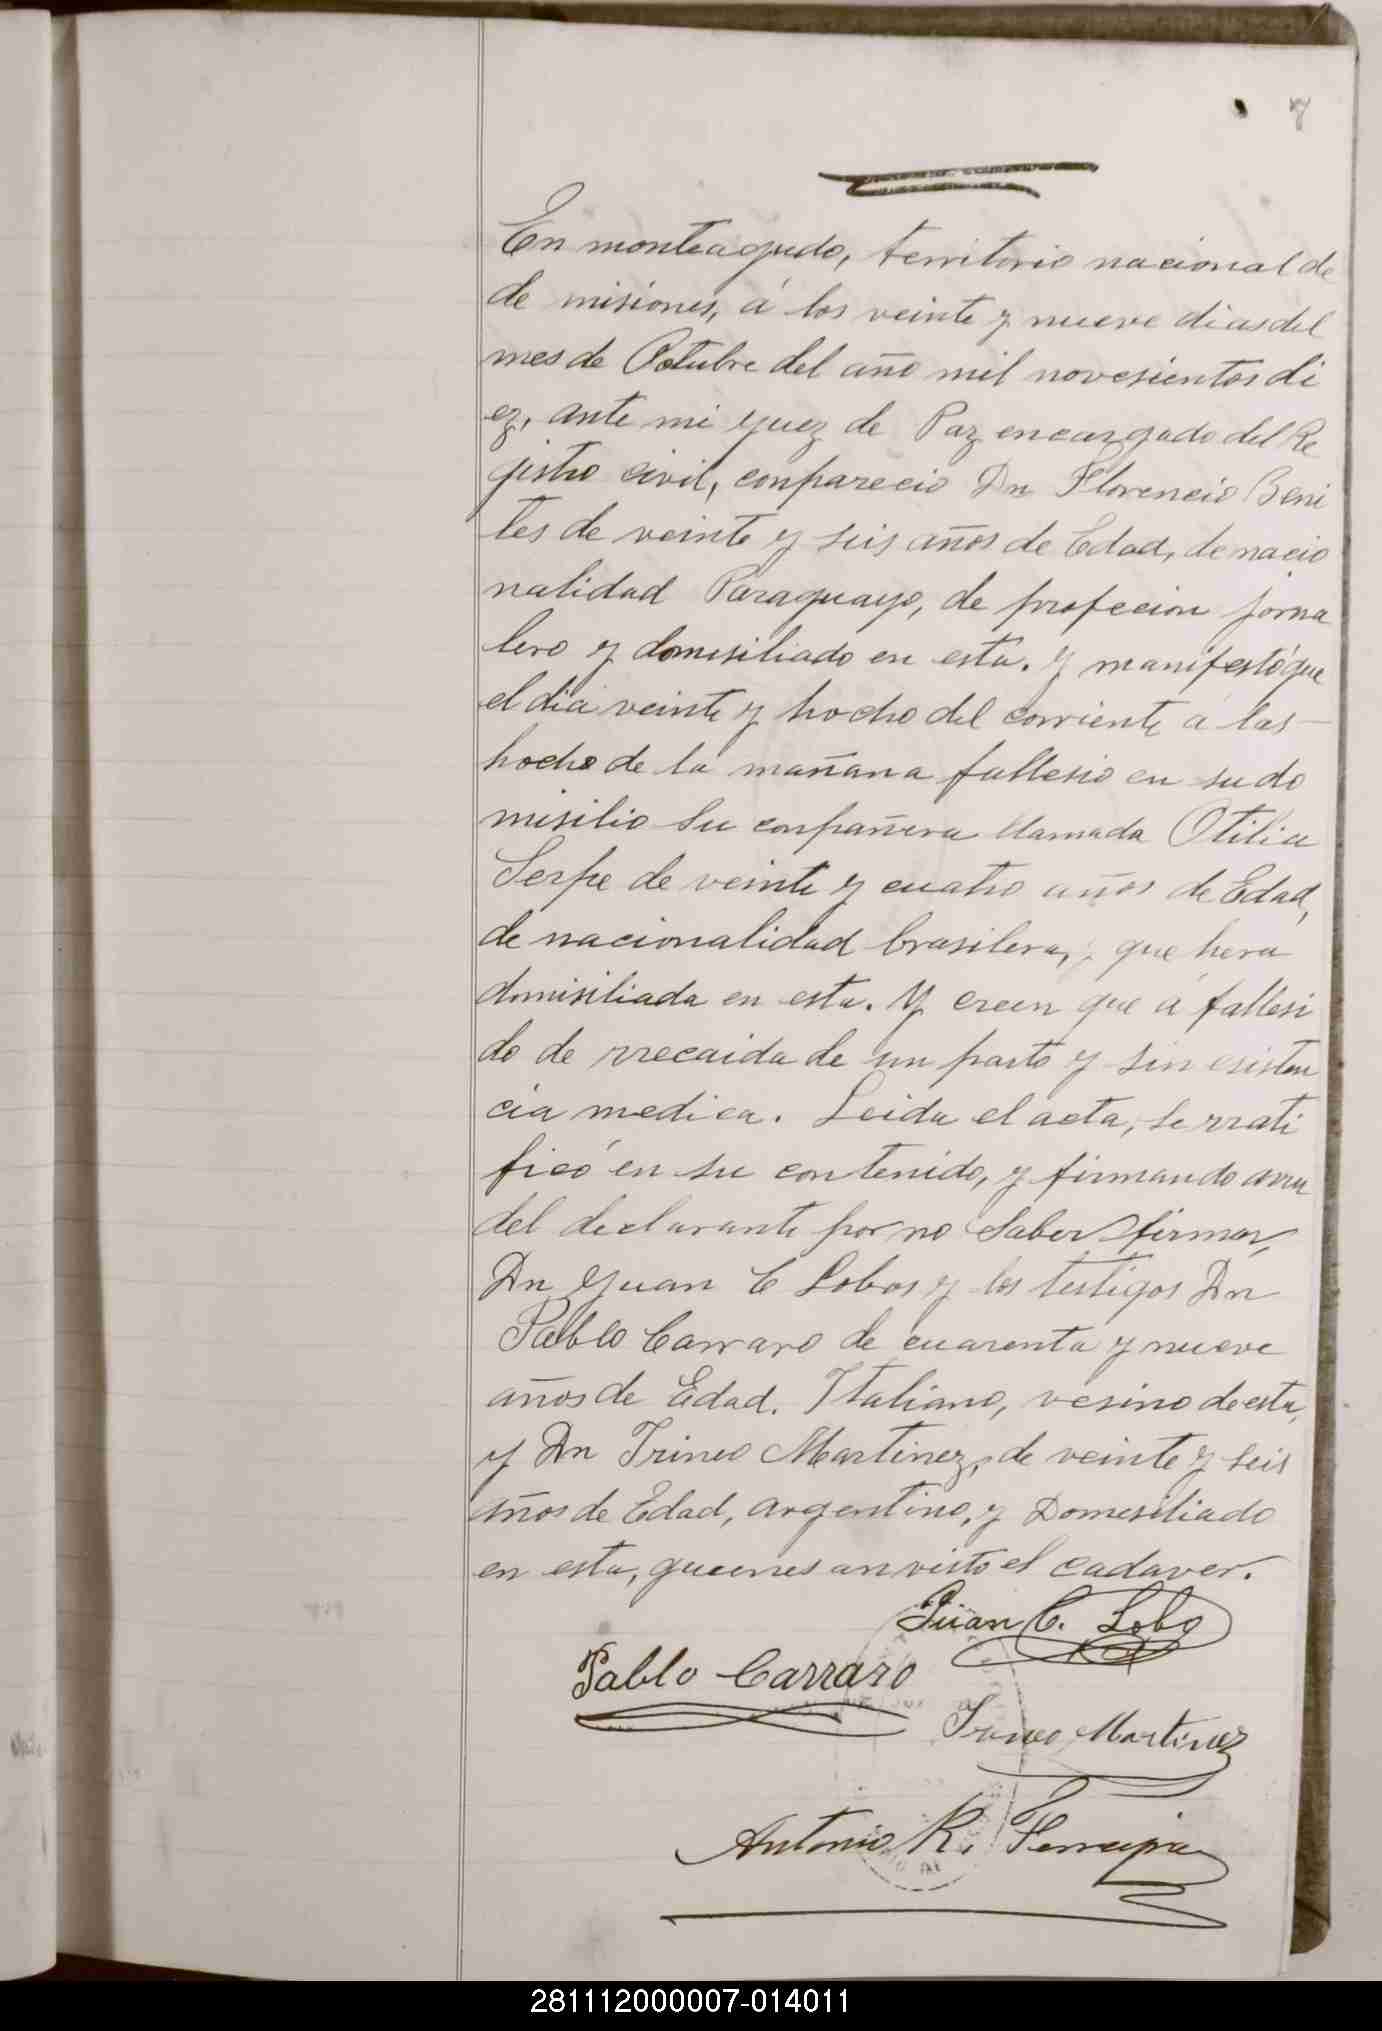 En monteagudo, territorio nacional de
de misiones, á los veinte y nueve dias del
mes de Octubre del año mil novesientos di
ez, ante mi yuez de Paz encargado del Re
gistro civil, conparecio Dn Florencio Beni
tes de veinte y seis años de Edad, de nacio
nalidad Paraguayo, de profecion jorna
lero y domisiliado en esta. y manifestó que
el dia veinte y hocho del corriente á las
hocho de la mañana fallesio en su do
misilio su conpañera llamada Otilia
Serpe de veinte y cuatro años de Edad,
de nacionalidad brasilera, que hera
domisiliada en esta. Y creen que á fallesi
do de rrecaida de un parto y sin esisten
cia medica. Leida el acta, se rrati
ficó en su contenido, y firmando
del declarante por no saber firmar,
Dn Yuan C Lobos y los testigos Dn
Pablo Carraro de cuarenta y nueve
años de Edad. Italiano, vesino de esta,
y Dn Irineo Martinez, de veinte y seis
años de Edad, argentino, y Domesiliado
en esta, quenes an visto el cadaver.
Juan C. Lobo
Pablo Carraro
Irineo Martinez
Antonio R.
281112000007-014011